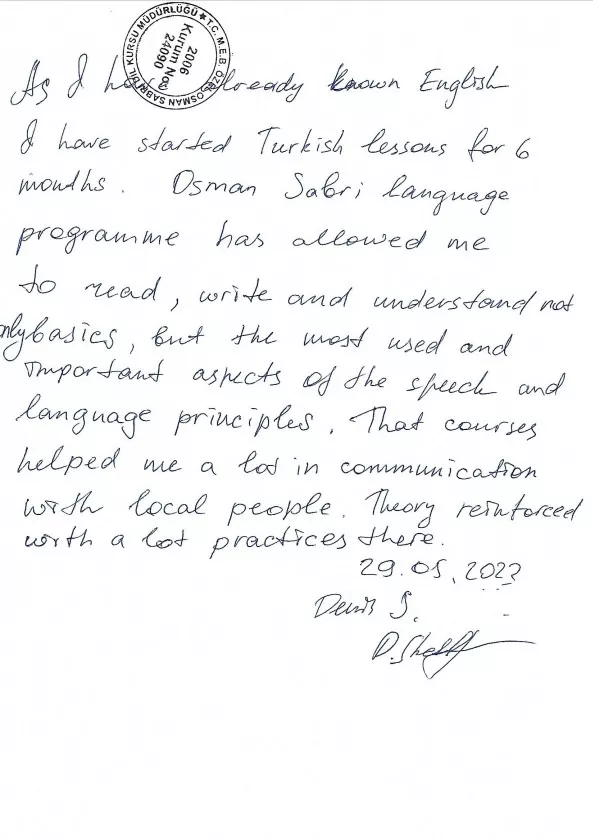 T.C. M.E.B. ÖZEL OSMAN SABRİ DİL KURSU MÜDÜRLÜĞÜ
2006
Kurum No:
24090
As I already known English
I have started Turkish lessons for 6
months. Osman Sabri language
programme has allowed me
to read, write and understand not
onlybasics, but the most used and
important aspects of the speech and
language principles. That courses
helped me a lot in communication
with local people. Theory reinforced
with a lot practices there.
29.05.2023
Denis S.